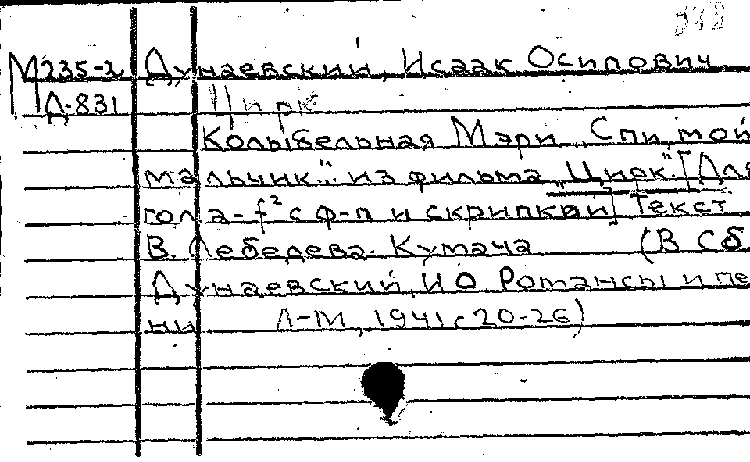 М235-2 Дунаевский, Исаак Осипович
Д-831 Цирк
Колыбельная Мэри „Спи, мой
мальчик": из фильма „Цирк" [Для
гол а-f² с ф-п и скрипкой] Текст
В. Лебедева-Кумача (В сб
Дунаевский, И О Романсы и пе
ни Л-М, 1941, с 20-26)